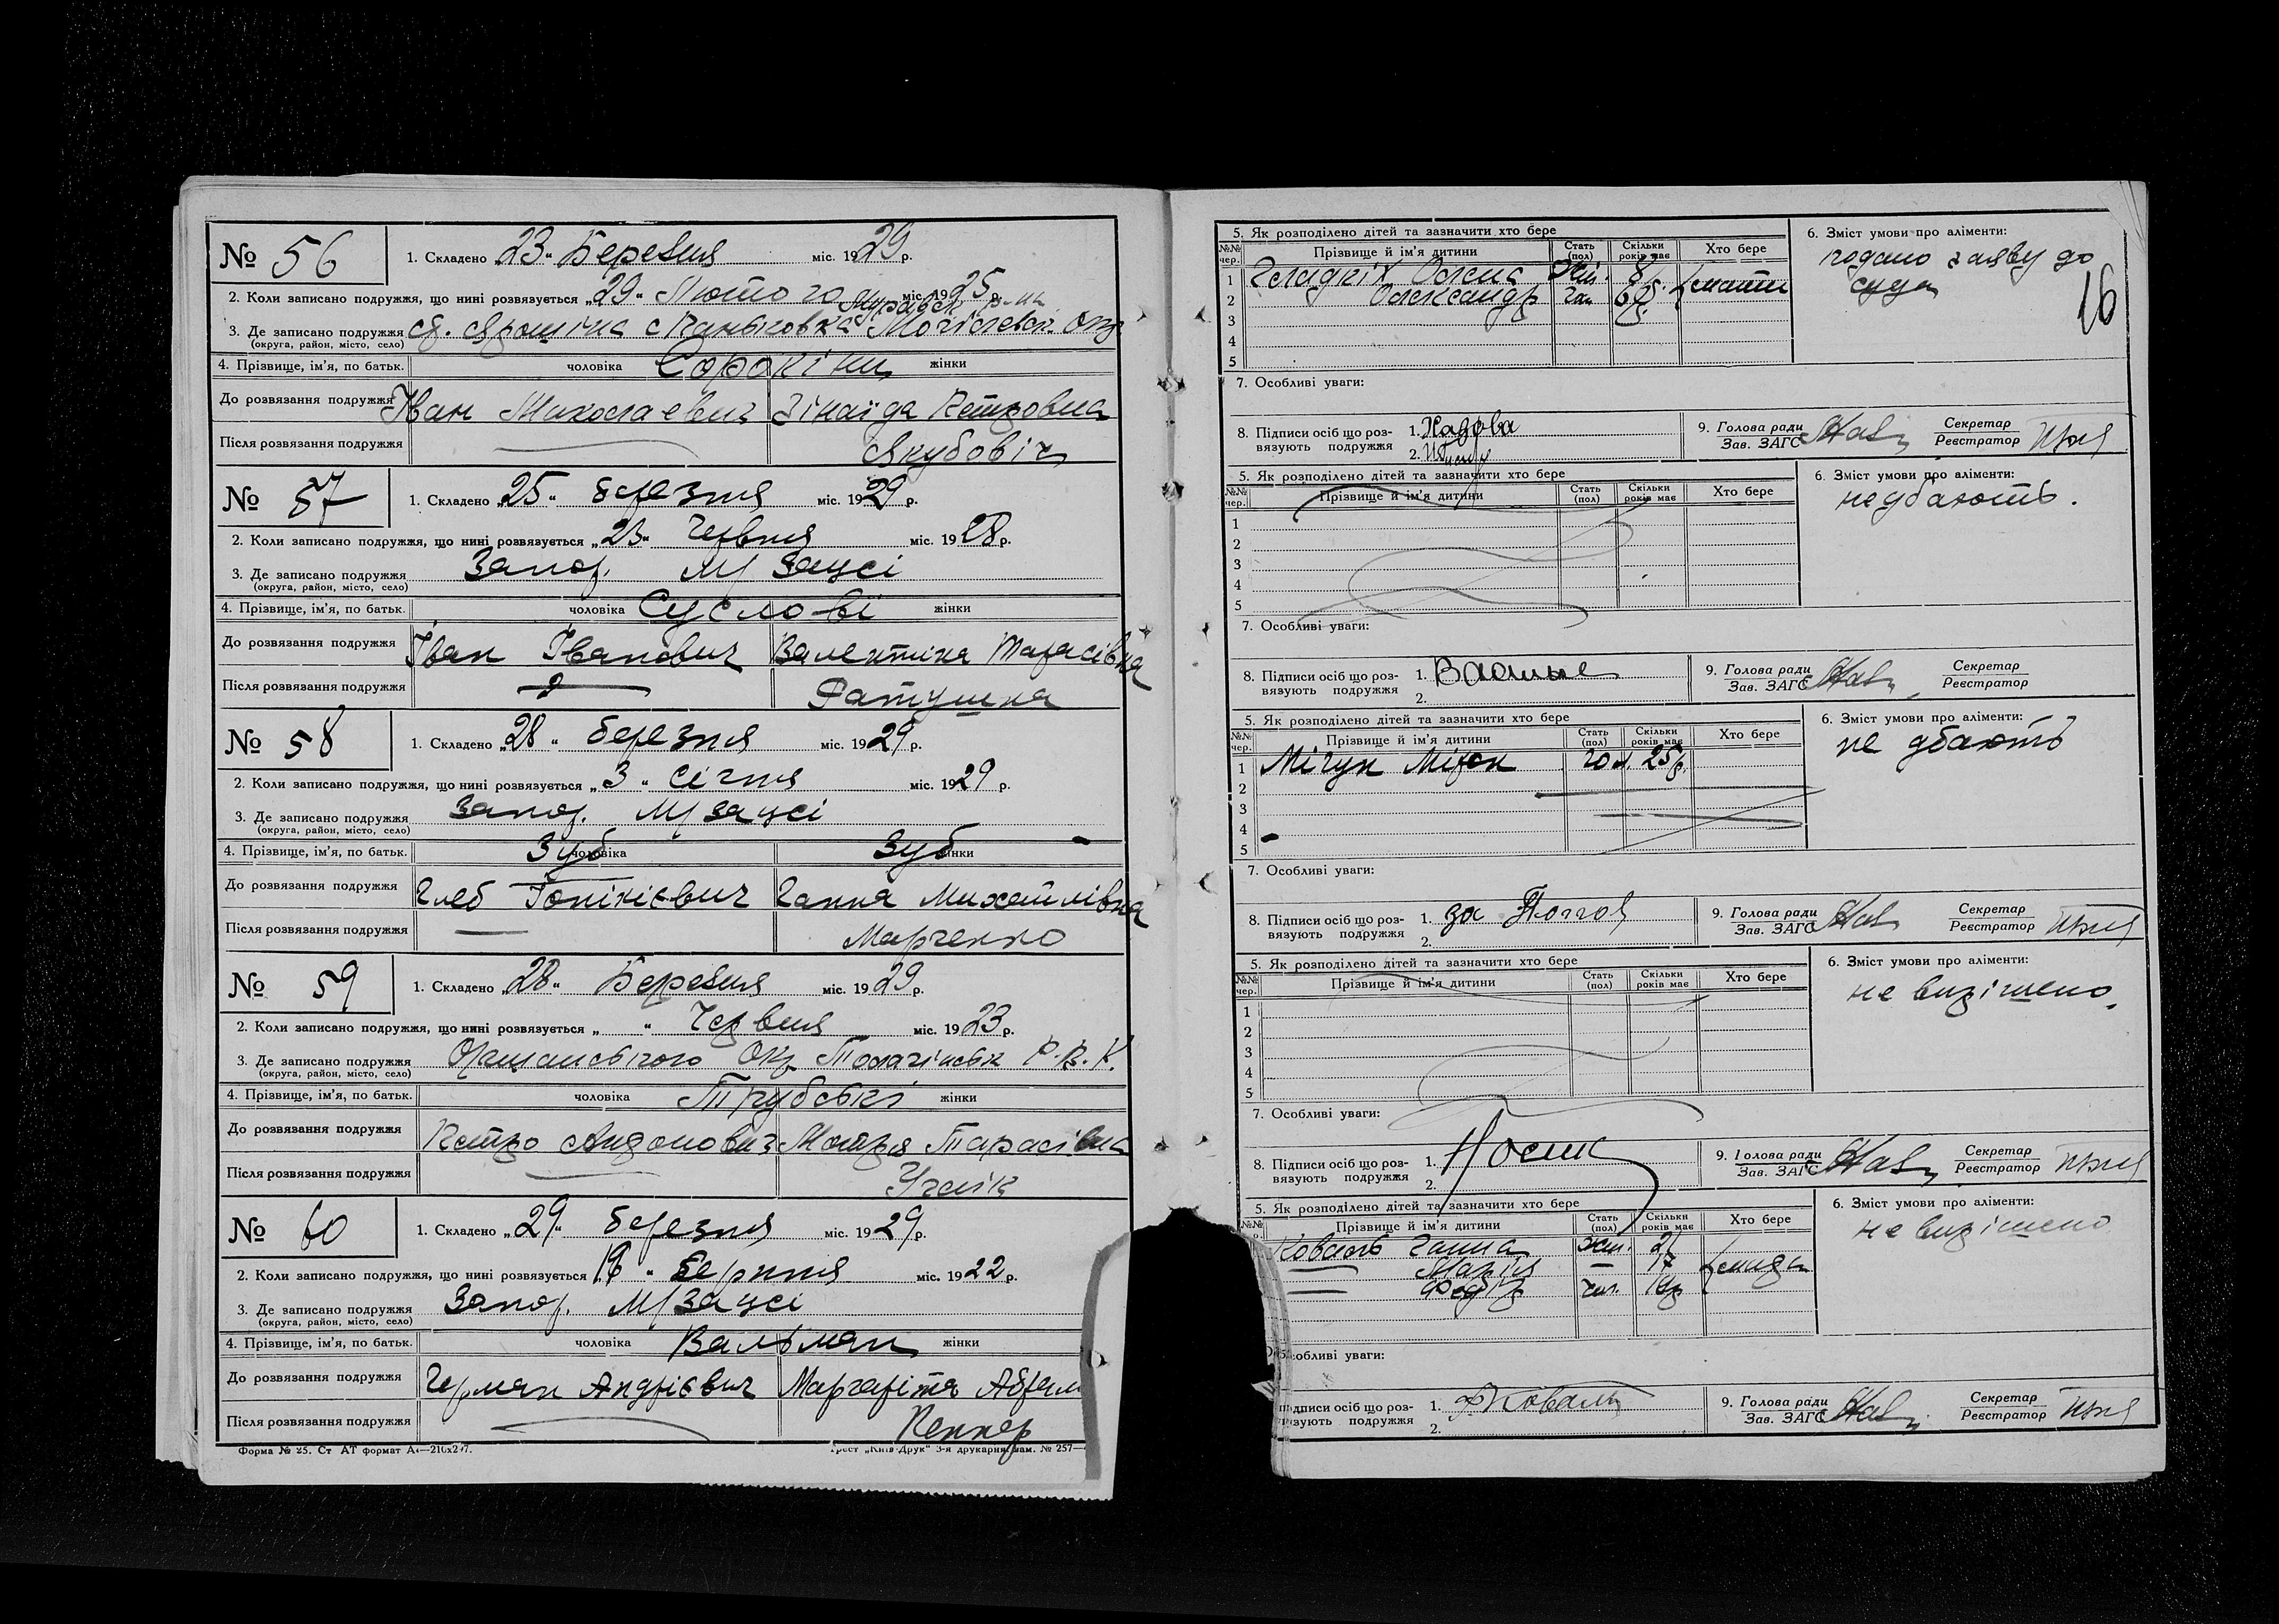 № 56
1. Складено „23“ Березня міс. 1929 р.
2. Коли записано подружжя, що нині розвязується „29“ Лютого міс. 1925 р.
3. Де записано подружжя
(округа, район, місто, село)
4. Прізвище, ім'я, по батьк. чоловіка Сорокіни жінки
До розвязання подружжя Іван Миколаевич Зінаїда Петровна
Після розвязання подружжя — Якубовіч
№ 57
1. Складено „25“ березня міс. 1929 р.
2. Коли записано подружжя, що нині розвязується „23“ Червня міс. 1928 р.
3. Де записано подружжя Запор. М/Загсі
(округа, район, місто, село)
4. Прізвище, ім'я, по батьк. чоловіка Суслові жінки
До розвязання подружжя Іван Іванович Валентина Тарасівна
Після розвязання подружжя — Фатушна
№ 58
1. Складено „28“ березня міс. 1929 р.
2. Коли записано подружжя, що нині розвязується „3“ Січня міс. 1929 р.
3. Де записано подружжя Запор. М/Загсі
(округа, район, місто, село)
4. Прізвище, ім'я, по батьк. Зуб чоловіка Зуб жінки
До розвязання подружжя Глеб Ганна Михайлівна
Після розвязання подружжя — Марченко
№ 59
1. Складено „28“ Березня міс. 1929 р.
2. Коли записано подружжя, що нині розвязується „ “ Червня міс. 1923 р.
3. Де записано подружжя Окр. Р.В.К.
(округа, район, місто, село)
4. Прізвище, ім'я, по батьк. чоловіка Трубські жінки
До розвязання подружжя Петро Мотря Тарасівна
Після розвязання подружжя —
№ 60
1. Складено „29“ березня міс. 1929 р.
2. Коли записано подружжя, що нині розвязується міс. 1922 р.
3. Де записано подружжя Запор. М/Загсі
(округа, район, місто, село)
4. Прізвище, ім'я, по батьк. чоловіка Вальман жінки
До розвязання подружжя Герман Андрієвич Маргаріта Абрам
Після розвязання подружжя — Пеннер
Форма № 25. Ст АТ формат А4—210х297.
Трест „Київ-Друк“ 3-я друкарня зам. № 257—
16
5. Як розподілено дітей та зазначити хто бере
6. Зміст умови про аліменти:
№№ чер. Прізвище й ім'я дитини Стать (пол) Скільки років має Хто бере
подано заяву до
суда
1 Гладкіх Олена жін. 8 мати
2 Олександр чол. 6 р.
3
4
5
7. Особливі уваги:
8. Підписи осіб що розвязують подружжя 1. 2.
9. Голова ради Зав. ЗАГС Секретар Реєстратор
5. Як розподілено дітей та зазначити хто бере
6. Зміст умови про аліменти:
№№ чер. Прізвище й ім'я дитини Стать (пол) Скільки років має Хто бере
не дбають.
1
2
3
4
5
7. Особливі уваги:
8. Підписи осіб що розвязують подружжя 1. 2.
9. Голова ради Зав. ЗАГС Секретар Реєстратор
5. Як розподілено дітей та зазначити хто бере
6. Зміст умови про аліменти:
№№ чер. Прізвище й ім'я дитини Стать (пол) Скільки років має Хто бере
не дбають
1 Мічун
2
3
4
5
7. Особливі уваги:
8. Підписи осіб що розвязують подружжя 1. за 2.
9. Голова ради Зав. ЗАГС Секретар Реєстратор
5. Як розподілено дітей та зазначити хто бере
6. Зміст умови про аліменти:
№№ чер. Прізвище й ім'я дитини Стать (пол) Скільки років має Хто бере
не вирішено
1
2
3
4
5
7. Особливі уваги:
8. Підписи осіб що розвязують подружжя 1. Носик 2.
9. Голова ради Зав. ЗАГС Секретар Реєстратор
5. Як розподілено дітей та зазначити хто бере
6. Зміст умови про аліменти:
№№ Прізвище й ім'я дитини Стать (пол) Скільки років має Хто бере
не вирішено
Коваль Ганна жін. 21
— Марія — 17
— Федір чол.
собливі уваги:
підписи осіб що розвязують подружжя 1. Коваль 2.
9. Голова ради Зав. ЗАГС Секретар Реєстратор